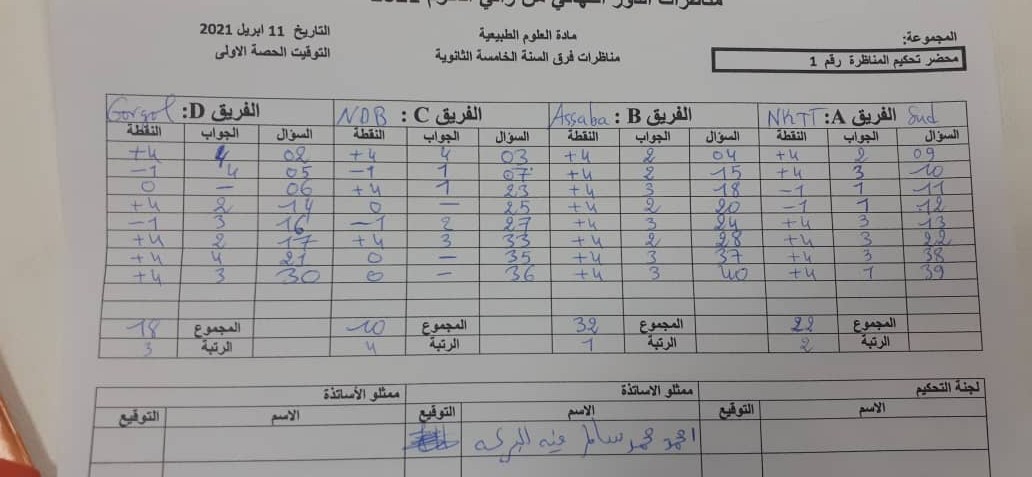 التاريخ 11 ابريل 2021
مادة العلوم الطبيعية
المجموعة:
التوقيت الحصة الاولى
مناظرات فرق السنة الخامسة الثانوية
محضر تحكيم المناظرة رقم 1
الفريق A: NKTT Sud الفريق B : Assaba الفريق C : NDB الفريق D: Gorgol
السؤال الجواب النقطة السؤال الجواب النقطة السؤال الجواب النقطة السؤال الجواب النقطة
09 2 +4 04 2 +4 03 4 +4 02 4 +4
10 3 +4 15 2 +4 07 1 -1 05 4 -1
11 1 -1 18 3 +4 23 1 +4 06 - 0
12 1 -1 20 2 +4 25 - 0 14 2 +4
13 3 +4 24 3 +4 27 2 -1 16 3 -1
22 3 +4 28 2 +4 33 3 +4 17 2 +4
38 3 +4 37 3 +4 35 - 0 21 4 +4
39 1 +4 40 3 +4 36 - 0 30 3 +4
المجموع 22 المجموع 32 المجموع 10 المجموع 18
الرتبة 2 الرتبة 1 الرتبة 4 الرتبة 3
لجنة التحكيم ممثلو الاساتذة ممثلو الأساتذة
الاسم التوقيع الاسم التوقيع الاسم التوقيع
احمد محمد سالم